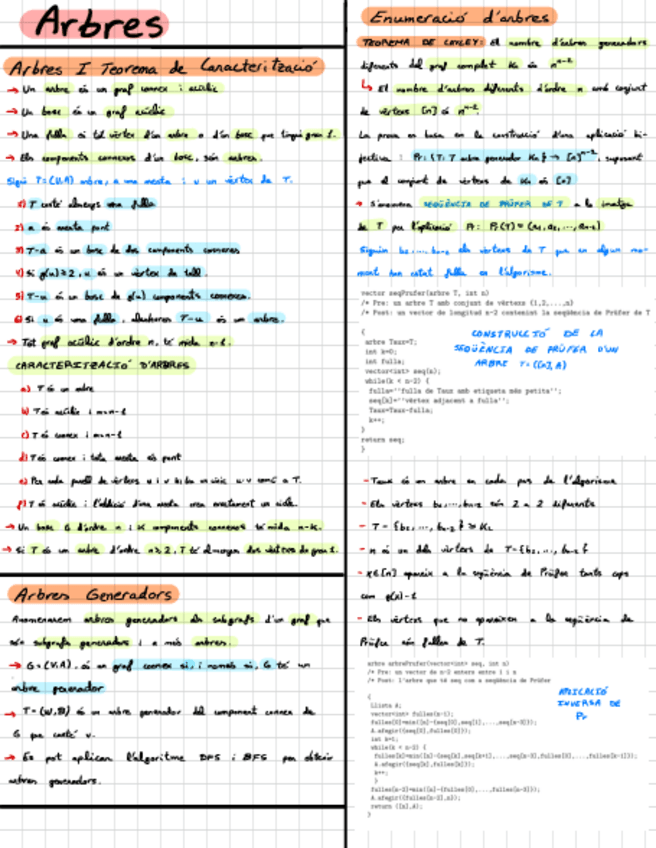 Arbres
Arbres I Teorema de Caracterització
→ Un arbre és un graf connex i acíclic
→ Un bosc és un graf acíclic
→ Una fulla és tal vèrtex d'un arbre o d'un bosc que tingui grau 1.
→ Els components connexos d'un bosc, són arbres.
Sigui T=(V,A) arbre, a una aresta i u un vèrtex de T.
1) T conté almenys una fulla
2) a és aresta pont
3) T-a és un bosc de dos components connexos
4) Si g(u)≥2, u és un vèrtex de tall.
5) T-u és un bosc de g(u) components connexos.
6) Si u és una fulla, aleshores T-u és un arbre.
→ Tot graf acíclic d'ordre n, té mida n-1.
CARACTERITZACIÓ D'ARBRES
a) T és un arbre
b) T és acíclic i m=n-1
c) T és connex i m=n-1
d) T és connex i tota aresta és pont
e) Per cada parell de vèrtexs u i v hi ha un únic u-v camí a T.
f) T és acíclic i l'addició d'una aresta crea exactament un cicle.
→ Un bosc G d'ordre n i K components connexos té mida n-K.
→ Si T és un arbre d'ordre n≥2, T té almenys dos vèrtexs de grau 1.
Arbres Generadors
Anomenarem arbres generadors als subgrafs d'un graf que
són subgrafs generadors i a més arbres.
→ G=(V,A), és un graf connex si, i només si, G té un
arbre generador
→ T=(W,B) és un arbre generador del component connex de
G que conté v.
→ Es pot aplicar l'algoritme DFS i BFS per obtenir
arbres generadors.
Enumeració d'arbres
TEOREMA DE CAYLEY: El nombre d'arbres generadors
diferents del graf complet Kn és n^(n-2)
↳ El nombre d'arbres diferents d'ordre n amb conjunt
de vèrtexs [n] és n^(n-2).
La prova es basa en la construcció d'una aplicació bi-
jectiva : Pr: {T: T arbre generador Kn} → [n]^(n-2), suposant
que el conjunt de vèrtexs de Kn és [n]
→ S'anomena SEQÜÈNCIA DE PRÜFER DE T a la imatge
de T per l'aplicació Pr: Pr(T)=(a1,a2,...,an-2)
Siguin b1,..., bn-2 els vèrtexs de T que en algun mo-
ment han estat fulla en l'algorisme.
vector seqPrufer(arbre T, int n)
/* Pre: un arbre T amb conjunt de vèrtexs {1,2,...,n}
/* Post: un vector de longitud n-2 contenint la seqüència de Prüfer de T
{
arbre Taux=T;
int k=0;
vector<int> seq(n);
while(k < n-2) {
fulla=''fulla de Taux amb etiqueta més petita'';
seq[k]=''vèrtex adjacent a fulla'';
Taux=Taux-fulla;
k++;
}
return seq;
}
CONSTRUCCIÓ DE LA
SEQÜÈNCIA DE PRÜFER D'UN
ARBRE T=([n],A)
- Taux és un arbre en cada pas de l'algorisme
- Els vèrtexs b1,...,bn-2 són 2 a 2 diferents
- T - {b1,..., bn-2} ≅ K2
- n és un dels vèrtexs de T-{b1,..., bn-2}
- x∈[n] apareix a la seqüència de Prüfer tants cops
com g(x)-1
- Els vèrtexs que no apareixen a la seqüència de
Prüfer són fulles de T.
arbre arbrePrufer(vector<int> seq, int n)
/* Pre: un vector de n-2 enters entre 1 i n
/* Post: l'arbre que té seq com a seqüència de Prüfer
{
Llista A;
vector<int> fulles(n-1);
fulles[0]=min([n]-{seq[0],seq[1],...,seq[n-3]});
A.afegir({seq[0],fulles[0]});
int k=1;
while(k < n-2) {
fulles[k]=min([n]-{seq[k],seq[k+1],...,seq[n-3],fulles[0],...,fulles[k-1]});
A.afegir({seq[k],fulles[k]});
k++;
}
fulles[n-2]=min([n]-{fulles[0],...,fulles[n-3]});
A.afegir({fulles[n-2],n});
return ([n],A);
}
APLICACIÓ
INVERSA DE
Pr